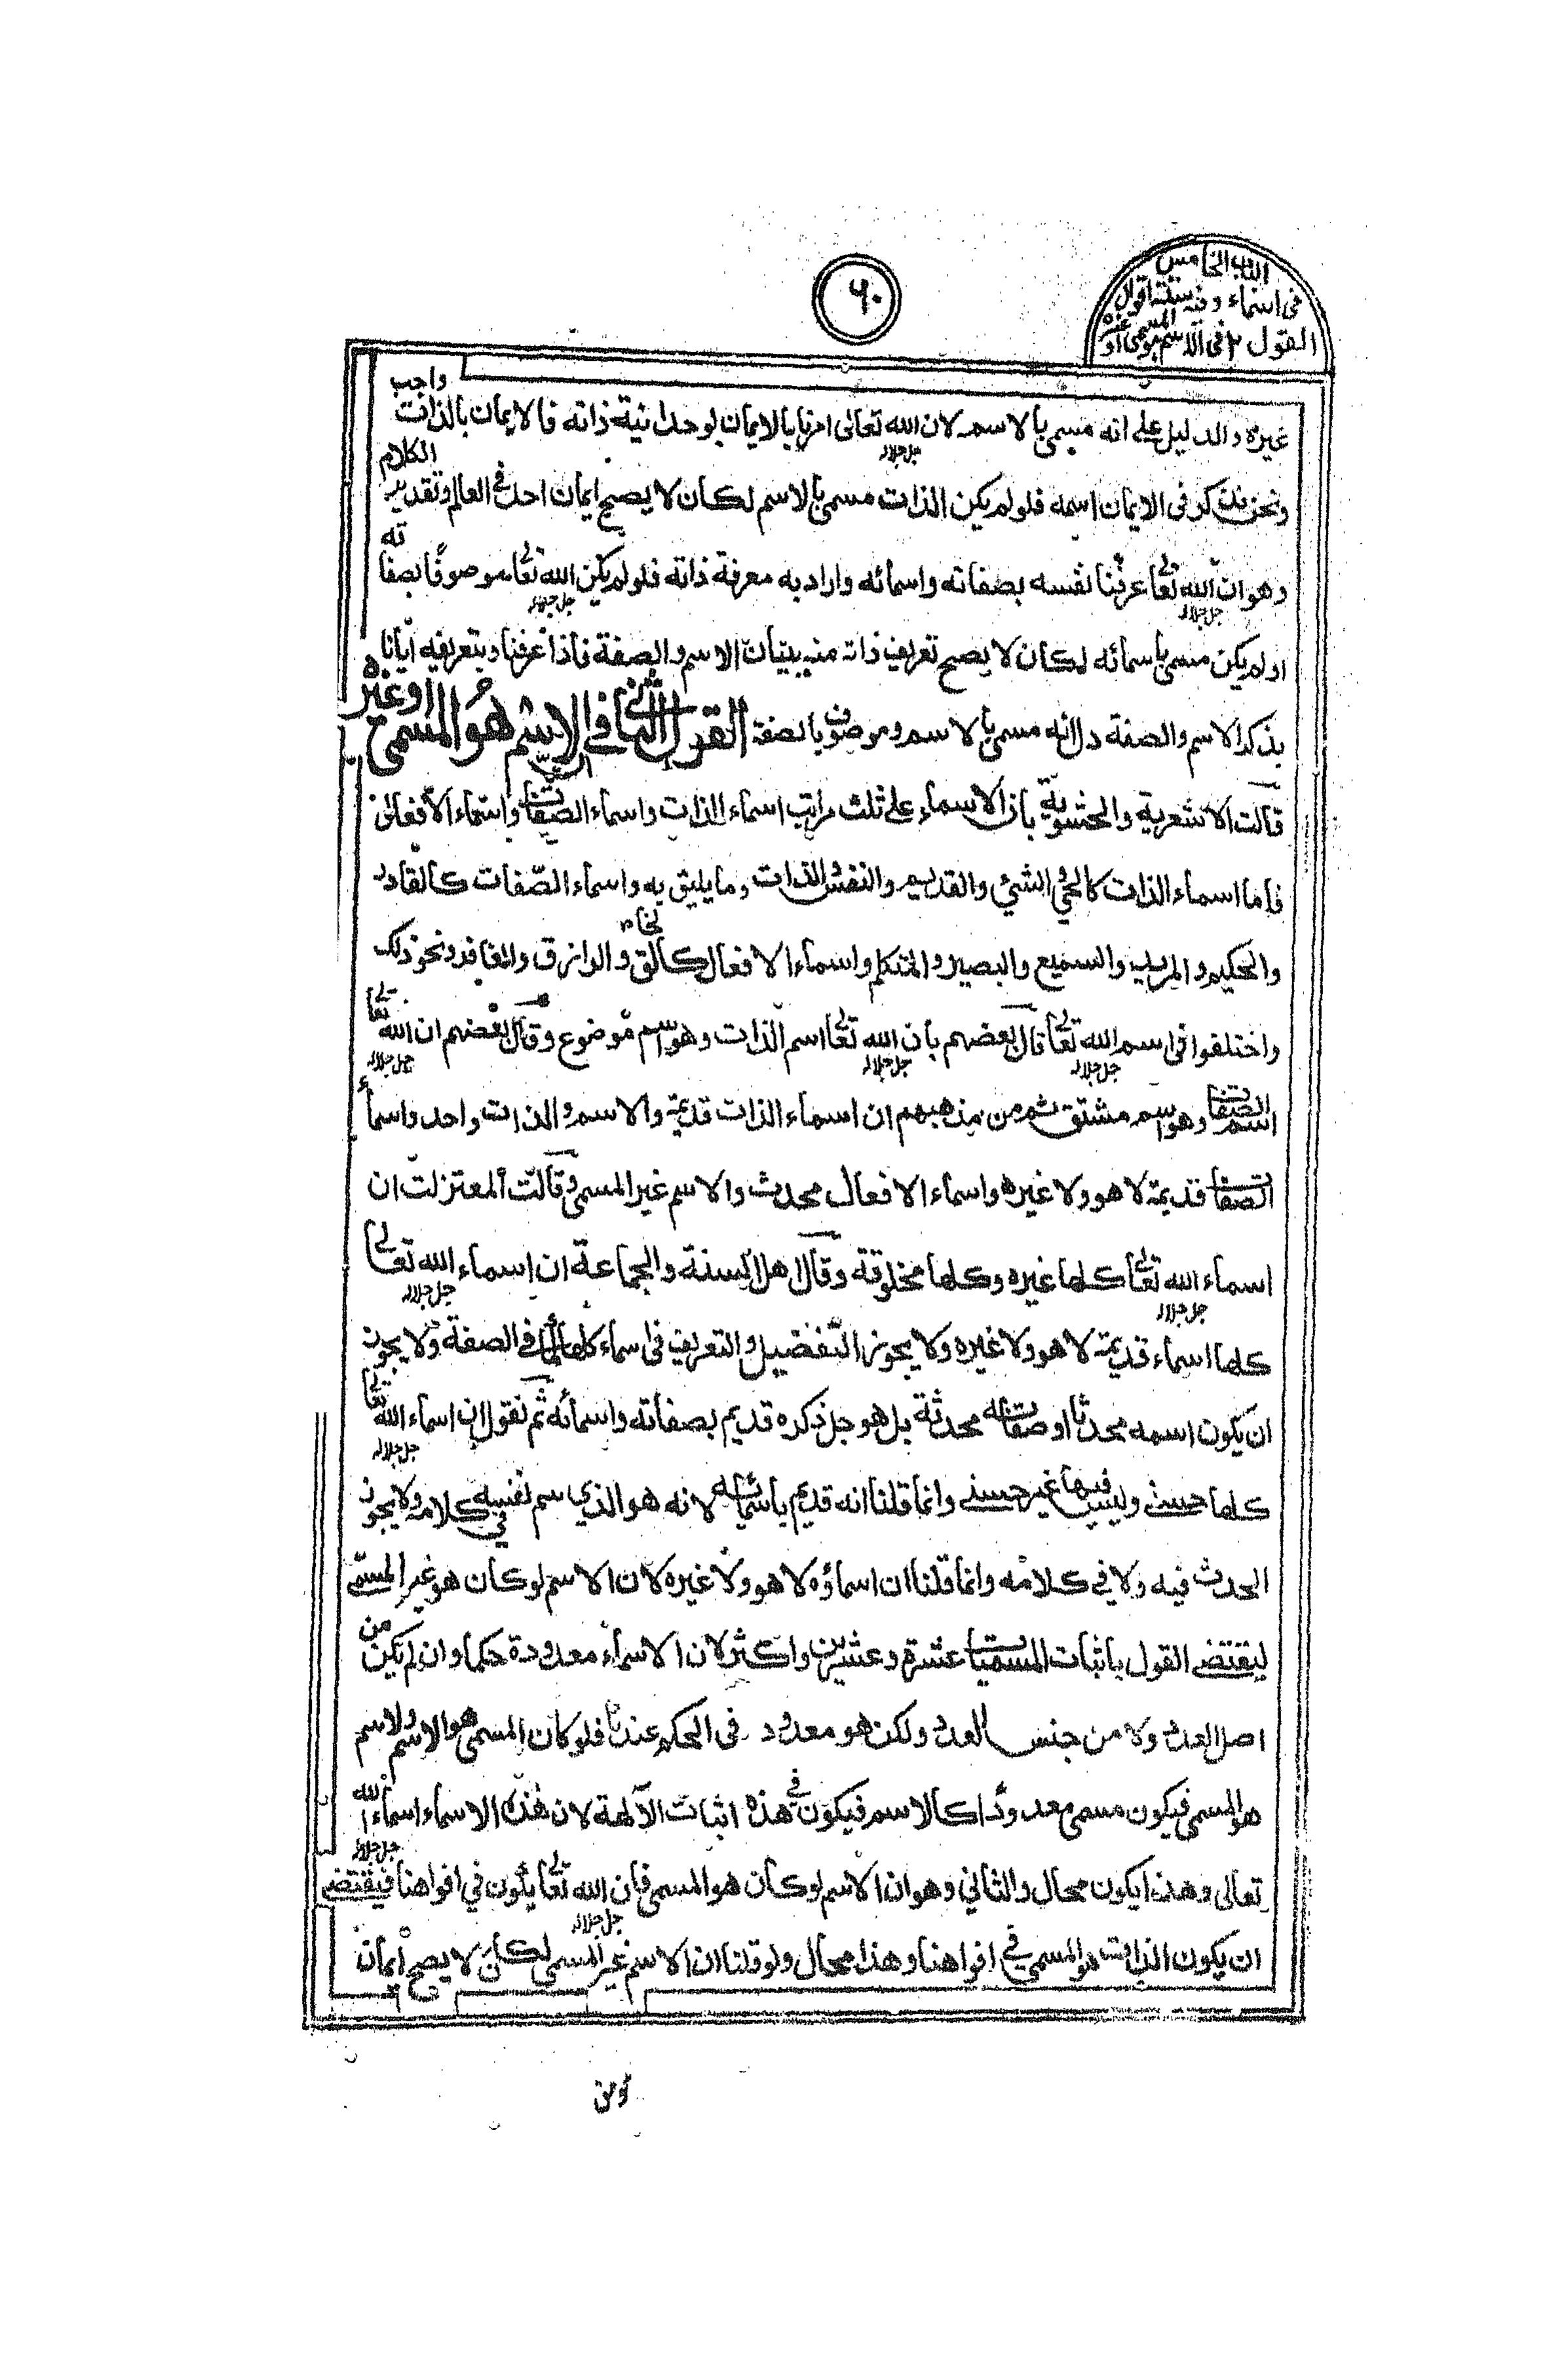 الباب الخامس
فی اسماء وفیه ستة اقوال
القول ٢ فی الاسم هو المسمی او غیره
٦٠
غیره والدلیل علی انه مسمی بالاسم لان الله تعالی امرنا بالایمان بوحدانیة ذاته فالایمان بالذات واجب
جل جلاله
ونحن نذکر فی الایمان اسمه فلو لم یکن الذات مسمی بالاسم لکان لا یصح ایمان احد فی العالم وتقدیر الکلام
وهو ان الله تعالی عرفنا نفسه بصفاته واسمائه واراد به معرفة ذاته فلو لم یکن الله تعالی موصوفا بصفاته
جل جلاله جل جلاله
او لم یکن مسمی باسمائه لکان لا یصح تعریف ذاته منه ببیان الاسم والصفة فاذا عرفنا وبتعریفه ایانا
بذکر الاسم والصفة دل انه مسمی بالاسم وموصوف بالصفة القول الثانی فی الاسم هو المسمی او غیره
قالت الاشعریة والحشویة بان الاسماء علی ثلث مراتب اسماء الذات واسماء الصفات واسماء الافعال
فاما اسماء الذات کالحی والشیٔ والقدیم والنفس والذات وما یلیق به واسماء الصفات کالقادر
والحکیم والمرید والسمیع والبصیر والمتکلم واسماء الافعال کالخالق والرازق والغافر ونحو ذلک
واختلفوا فی اسم الله تعالی قال بعضهم بان الله تعالی اسم الذات وهو اسم موضوع وقال بعضهم ان الله تعالی
جل جلاله جل جلاله جل جلاله
اسم الصفات وهو اسم مشتق ثم من مذهبهم ان اسماء الذات قدیمة والاسم والذات واحد واسماء
الصفات قدیمة لا هو ولا غیره واسماء الافعال محدث والاسم غیر المسمی وقالت المعتزلة ان
اسماء الله تعالی کلها غیره وکلها مخلوقة وقال اهل السنة والجماعة ان اسماء الله تعالی
جل جلاله جل جلاله
کلها اسماء قدیمة لا هو ولا غیره ولا یجوز التفضیل والتعریف فی اسماء کلها فی الصفة ولا یجوز
ان یکون اسمه محدثا او صفاته محدثة بل هو جل ذکره قدیم بصفاته واسمائه ثم نقول ان اسماء الله تعالی
جل جلاله
کلها حسنی ولیس فیها غیر حسنی وانما قلنا انه قدیم باسمائه لانه هو الذی سم نفسه فی کلامه ولا یجوز
الحدث فیه ولا فی کلامه وانما قلنا ان اسماؤه لا هو ولا غیره لان الاسم لو کان هو غیر المسمی
لیقتضی القول باثبات المسمیات عشرة وعشرین واکثر لان الاسماء معدودة حکما وان لم یکن من
اصل العدد ولا من جنس العدد ولکن هو معدود فی الحکم عندنا فلو کان المسمی هو الاسم ولاسم
هو المسمی فیکون مسمی معدودا کالاسم فیکون فی هذه اثبات الآلهة لان هذه الاسماء اسماء الله
جل جلاله
تعالی وهذا یکون محال والثانی وهو ان الاسم لو کان هو المسمی فان الله تعالی یکون فی افواهنا فیقتضی
جل جلاله
ان یکون الذات هو المسمی فی افواهنا وهذا محال ولو قلنا ان الاسم غیر المسمی لکان لا یصح ایمان